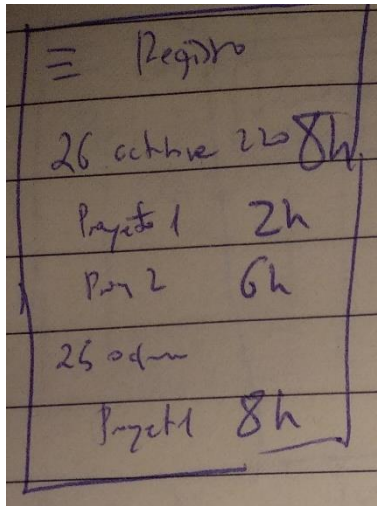 ≡ Registro
26 octubre 8h
Proyecto 1 2h
Proy 2 6h
25
Proyecto 1 8h